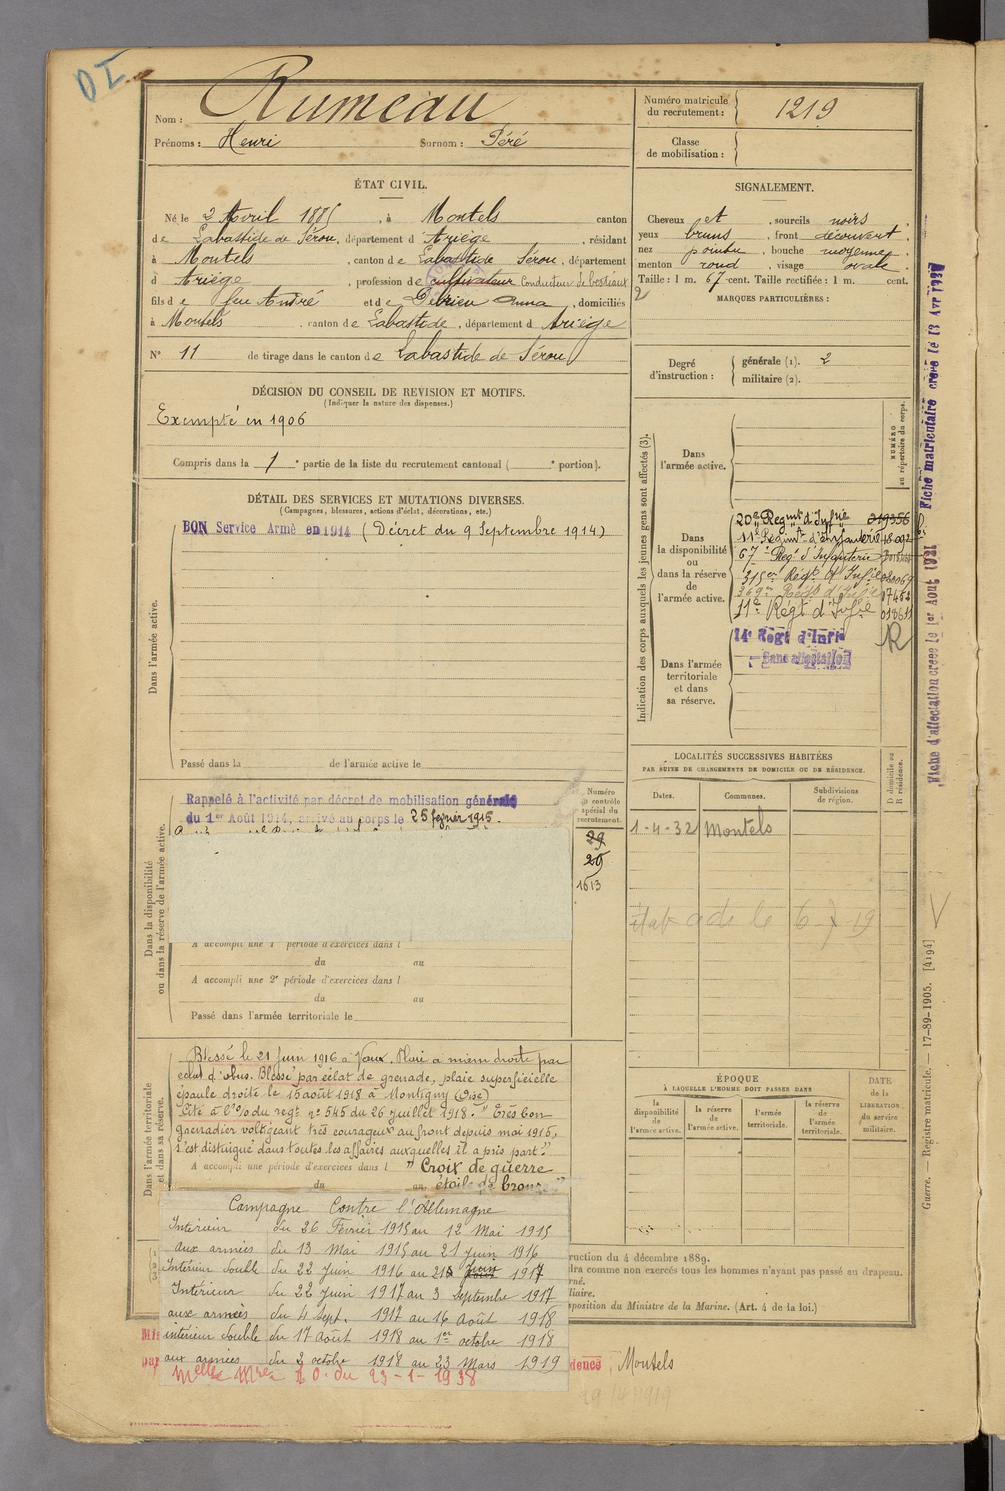 DI
Nom : Rumeau
Prénoms : Henri Surnom : Péré
Numéro matricule du recrutement : 1219
Classe de mobilisation :
ÉTAT CIVIL.
Né le 2 Avril 1885, à Montels canton
de Labastide de Sérou, département d'Ariège, résidant
à Montels, canton de Labastide Sérou, département
d Ariège, profession de cultivateur Conducteur de bestiaux
fils de feu André et de Anna, domiciliés
à Montels, canton de Labastide, département d Ariège
N° 11 de tirage dans le canton de Labastide de Sérou
SIGNALEMENT.
Cheveux et, sourcils noirs
yeux bruns, front découvert
nez pointu, bouche moyenne
menton rond, visage ovale
Taille : 1 m. 67 cent. Taille rectifiée : 1 m. cent.
2
MARQUES PARTICULIÈRES :
Degré d'instruction : générale (1). 2
militaire (2).
DÉCISION DU CONSEIL DE REVISION ET MOTIFS.
(Indiquer la nature des dispenses.)
Exempté en 1906
Compris dans la 1e partie de la liste du recrutement cantonal ( e portion).
DÉTAIL DES SERVICES ET MUTATIONS DIVERSES.
(Campagnes, blessures, actions d'éclat, décorations, etc.)
BON Service Armé en 1914 (Décret du 9 Septembre 1914)
Dans l'armée active.
Passé dans la de l'armée active le
Indication des corps auxquels les jeunes gens sont affectés (3).
NUMÉRO au répertoire du corps.
Dans l'armée active.
Dans la disponibilité ou dans la réserve de l'armée active.
20e Regmt d'Infrie 019356
11e Regimt d'infanterie 48092
67e Regt d'Infanterie
315e Régt d'Infie
369e Régt d'Infie 17482
11e Régt d'Infie 01861
Dans l'armée territoriale et dans sa réserve.
14e Régt d'Infie
Sans affectation
R
LOCALITÉS SUCCESSIVES HABITÉES
PAR SUITE DE CHANGEMENTS DE DOMICILE OU DE RÉSIDENCE.
Dates. Communes. Subdivisions de région. D domicile ou R résidence.
1-4-32 Montels
Rappelé à l'activité par décret de mobilisation générale
du 1er Août 1914, arrivé au corps le 25 février 1915.
Numéro du contrôle spécial du recrutement.
29
29
1613
Dans la disponibilité ou dans la réserve de l'armée active.
A accompli une 1e période d'exercices dans l
du au
A accompli une 2e période d'exercices dans l
du au
Passé dans l'armée territoriale le
Dans l'armée territoriale et dans sa réserve.
Blessé le 21 Juin 1916 à Vaux. Plaie a main droite par
eclat d'obus. Blessé par éclat de grenade, plaie superficielle
épaule droite le 15 août 1918 à Montigny (Oise)
Cité à l'% du regt n° 545 du 26 juillet 1918. "Très bon
grenadier voltigeant très courageux au front depuis mai 1915,
s'est distingué dans toutes les affaires auxquelles il a pris part."
A accompli une période d'exercices dans l "Croix de guerre
du au étoile de bronze"
Campagne Contre l'Allemagne
Intérieur du 26 Février 1915 au 12 Mai 1915
aux armées du 13 Mai 1915 au 21 juin 1916
Intérieur double du 22 Juin 1916 au 21 Juin 1917
Intérieur du 22 juin 1917 au 3 Septembre 1917
aux armées du 4 Sept. 1917 au 16 Août 1918
intérieur double du 17 Août 1918 au 1er octobre 1918
aux armées du 2 octobre 1918 au 23 Mars 1919
Melle Mre J.O. du 23-1-1938
ÉPOQUE
À LAQUELLE L'HOMME DOIT PASSER DANS
la disponibilité de l'armée active. la réserve de l'armée active. l'armée territoriale. la réserve de l'armée territoriale.
DATE de la LIBÉRATION du service militaire.
ruction du 4 décembre 1889.
dra comme non exercés tous les hommes n'ayant pas passé au drapeau.
rné.
liaire.
sposition du Ministre de la Marine. (Art. 4 de la loi.)
dence, Montels
Fiche d'affectation créée le 1er Août 1921
Fiche matriculaire créée le 13 Avr 1927
Guerre. — Registre matricule. — 17-89-1905. [4194]